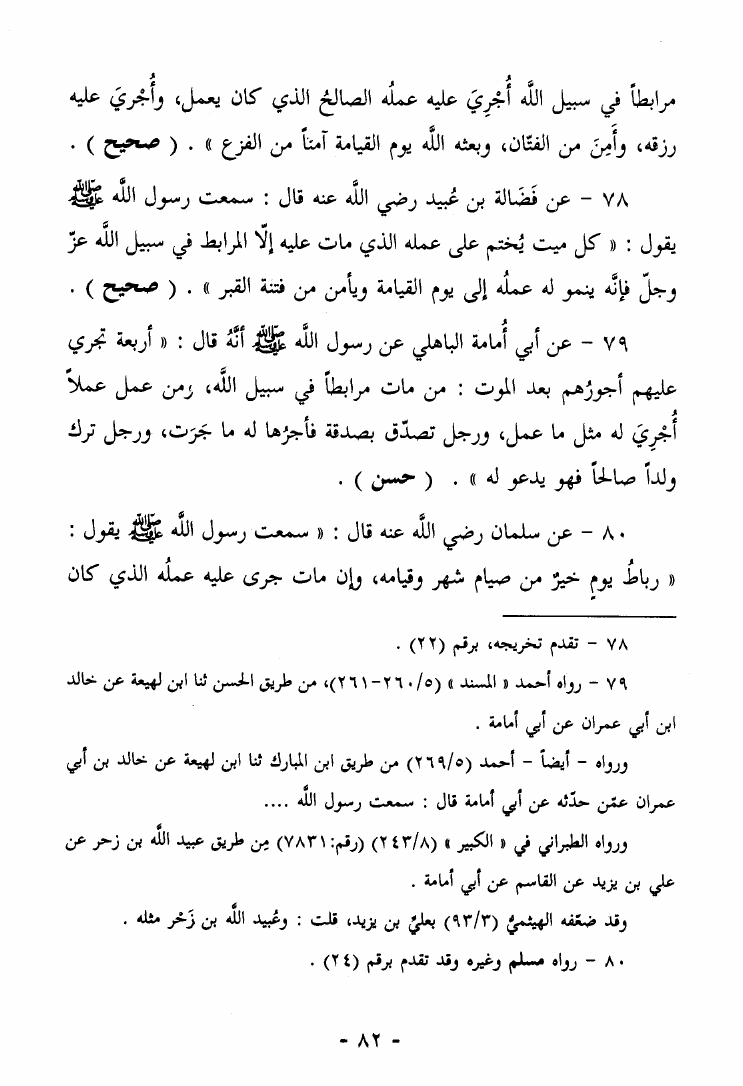 مرابطاً في سبيل اللَّه أُجْرِيَ عليه عملُه الصالحُ الذي كان يعمل، وأُجْريَ عليه
رزقه، وأَمِنَ من الفتّان، وبعثه اللَّه يوم القيامة آمناً من الفزع » . ( صحيح ) .
٧٨ - عن فَضَالة بن عُبيد رضي اللَّه عنه قال : سمعت رسول اللَّه ﷺ
يقول : « كل ميت يُختم على عمله الذي مات عليه إلّا المرابط في سبيل اللَّه عزّ
وجلّ فإنَّه ينمو له عملُه إلى يوم القيامة ويأمن من فتنة القبر » . ( صحيح ) .
٧٩ - عن أبي أُمامة الباهلي عن رسول اللَّه ﷺ أنَّهُ قال : « أربعة تجري
عليهم أجورُهم بعد الموت : من مات مرابطاً في سبيل اللَّه، ومن عمل عملاً
أُجْرِيَ له مثل ما عمل، ورجل تصدّق بصدقة فأجرُها له ما جَرَت، ورجل ترك
ولداً صالحاً فهو يدعو له » . ( حسن ) .
٨٠ - عن سلمان رضي اللَّه عنه قال : « سمعت رسول اللَّه ﷺ يقول :
« رباطُ يومٍ خيرٌ من صيام شهر وقيامه، وإن مات جرى عليه عملُه الذي كان
٧٨ - تقدم تخريجه، برقم (٢٢) .
٧٩ - رواه أحمد « المسند » (٢٦٠/٥-٢٦١)، من طريق الحسن ثنا ابن لهيعة عن خالد
ابن أبي عمران عن أبي أمامة .
ورواه - أيضاً - أحمد (٢٦٩/٥) من طريق ابن المبارك ثنا ابن لهيعة عن خالد بن أبي
عمران عمّن حدّثه عن أبي أمامة قال : سمعت رسول اللَّه ....
ورواه الطبراني في « الكبير » (٢٤٣/٨) (رقم:٧٨٣١) مِن طريق عبيد اللَّه بن زحر عن
علي بن يزيد عن القاسم عن أبي أمامة .
وقد ضعّفه الهيثميُّ (٩٣/٣) بعليِّ بن يزيد، قلت : وعُبيد اللَّه بن زَحْر مثله .
٨٠ - رواه مسلم وغيره وقد تقدم برقم (٢٤) .
- ٨٢ -